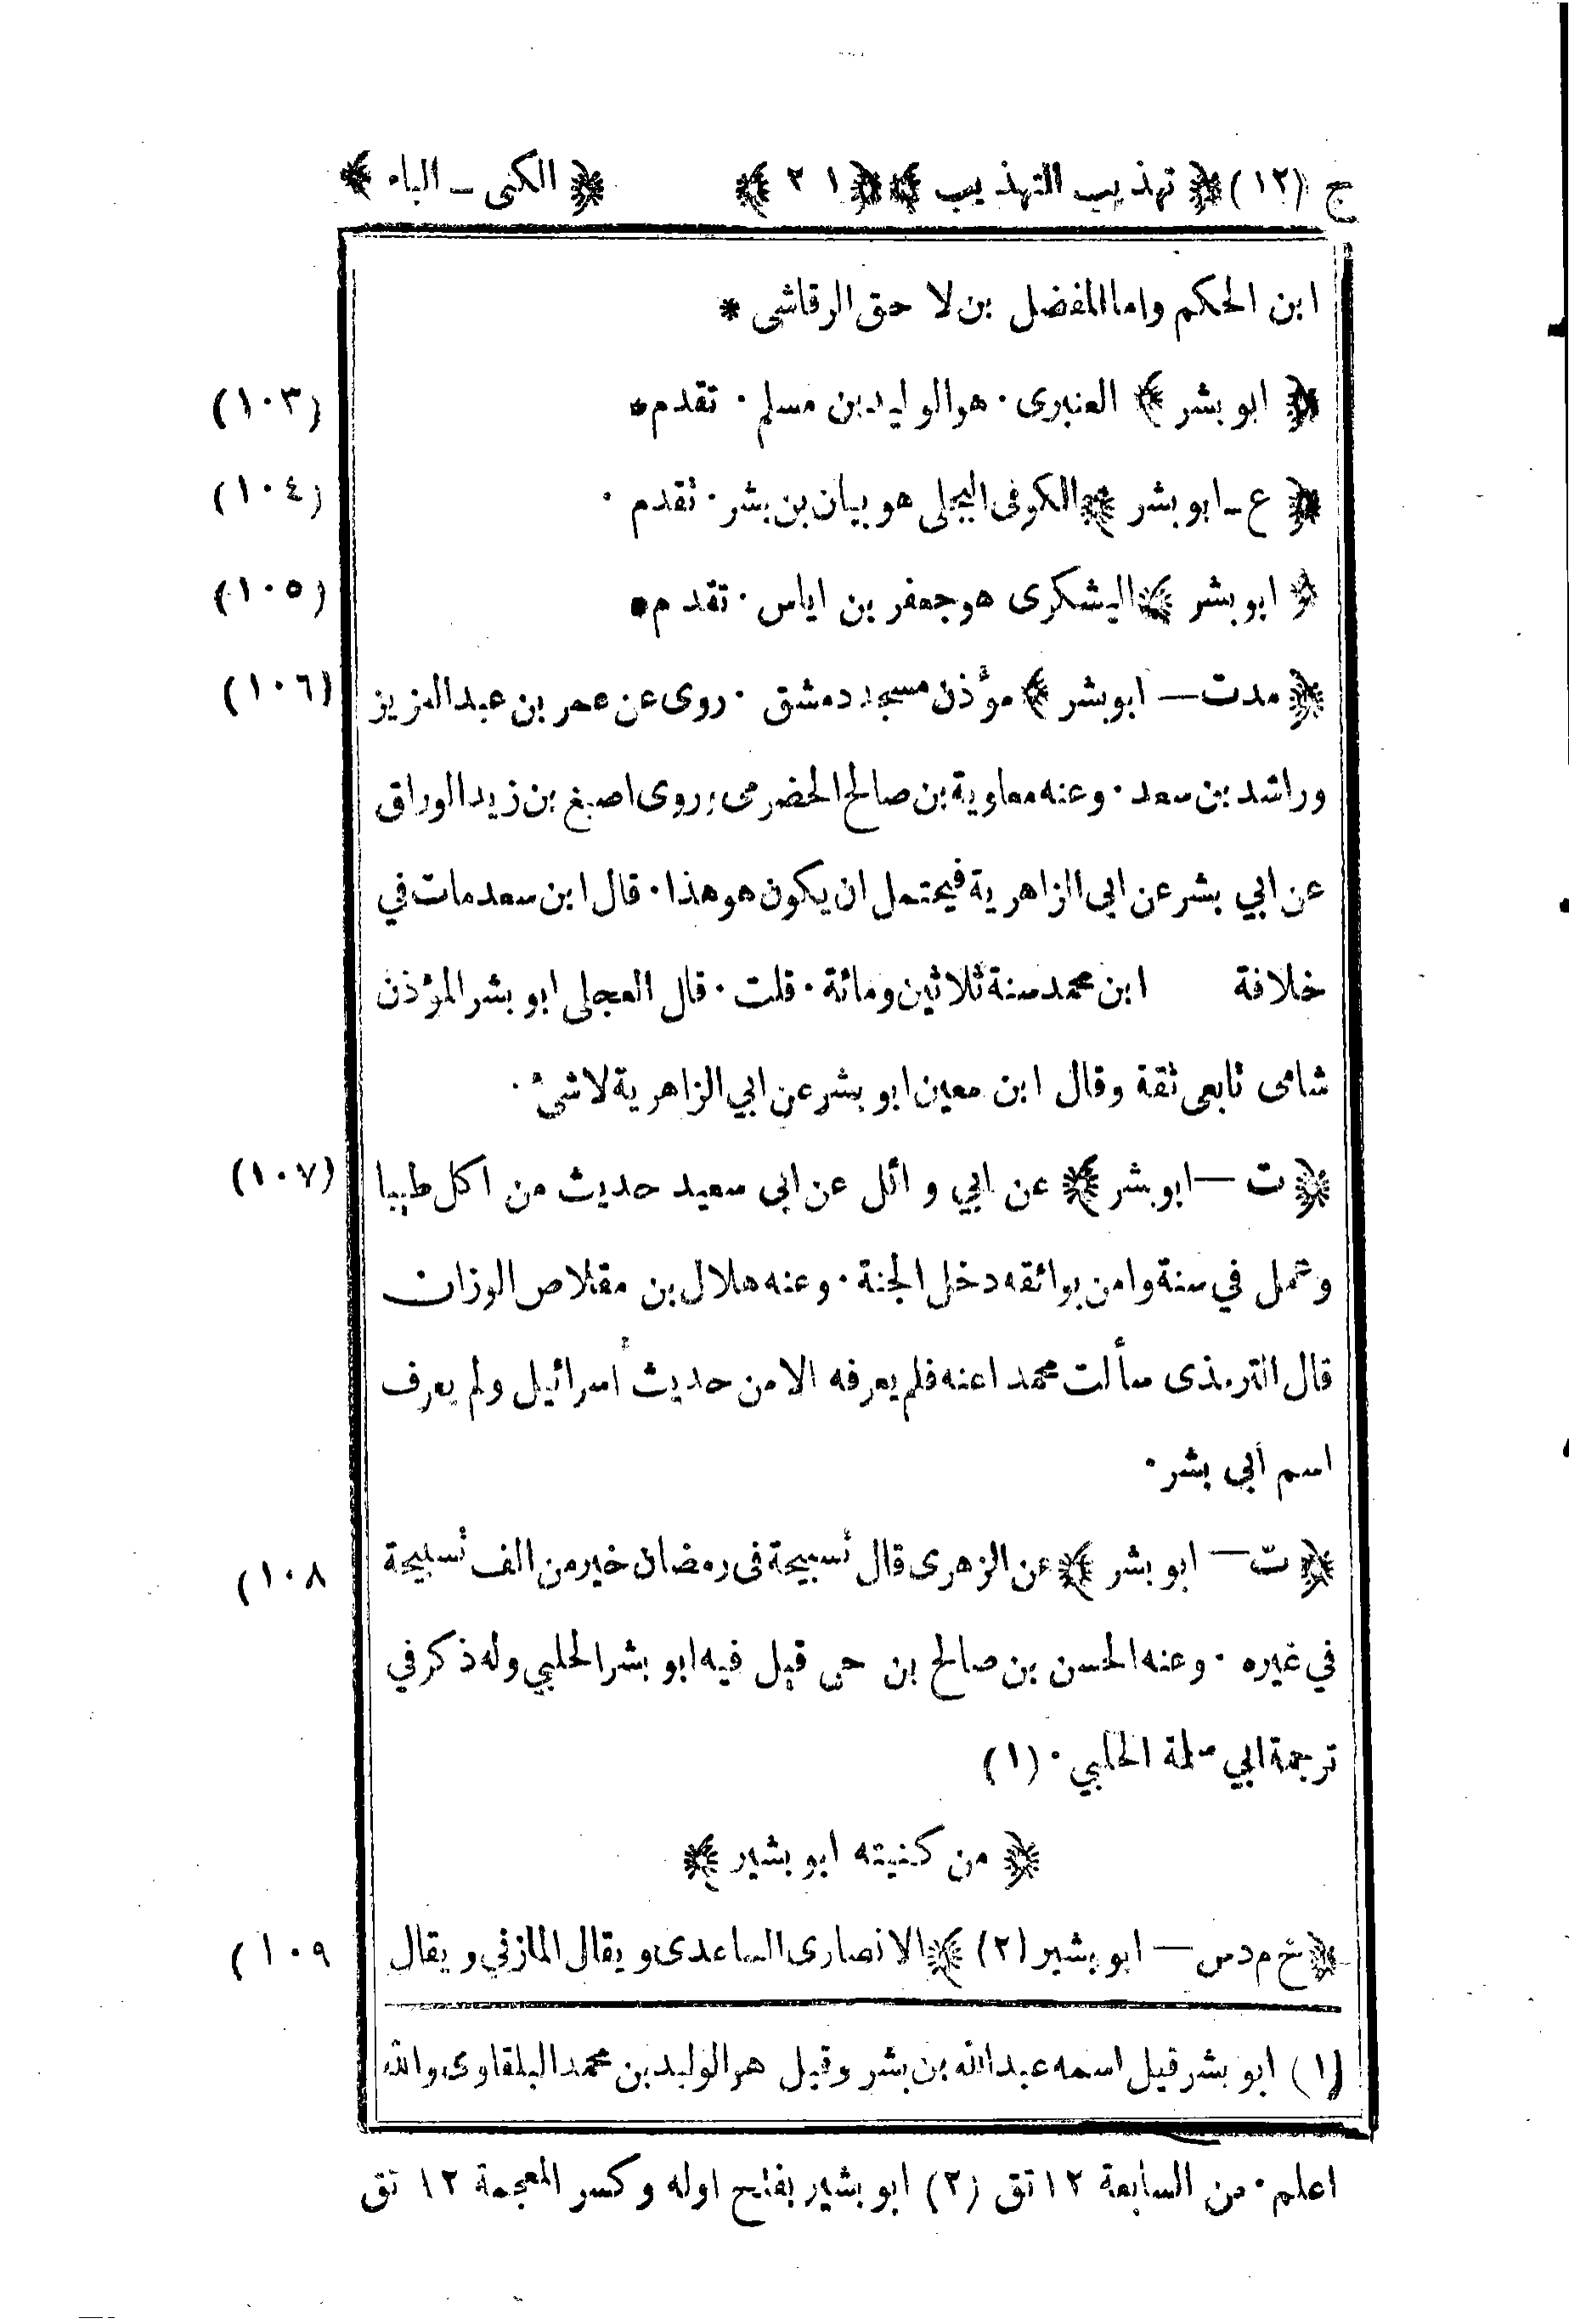 ج (١٢) ﴿ تهذيب التهذيب ﴾ ﴿ ٢١ ﴾ ﴿ الكنى ـ الباء ﴾
ابن الحكم واما المفضل بن لا حق الرقاشى *
(١٠٣) ﴿ ابو بشر ﴾ العنبرى ٠ هو الوليد بن مسلم ٠ تقدم *
(١٠٤) ﴿ ع ـ ابو بشر ﴾ الكوفى البجلى هو بيان بن بشر ٠ تقدم ٠
(١٠٥) ﴿ ابو بشر ﴾ اليشكرى هو جعفر بن اياس ٠ تقدم *
(١٠٦) ﴿ مدت — ابو بشر ﴾ مؤذن مسجد دمشق ٠ روى عن عمر بن عبد العزيز
وراشد بن سعد ٠ وعنه معاوية بن صالح الحضرمى وروى اصبغ بن زيد الوراق
عن ابي بشر عن ابي الزاهرية فيحتمل ان يكون هو هذا ٠ قال ابن سعد مات في
خلافة ابن محمد سنة ثلاثين ومائة ٠ قلت ٠ قال العجلى ابو بشر المؤذن
شامى تابعى ثقة وقال ابن معين ابو بشر عن ابي الزاهرية لا شئ ٠
(١٠٧) ﴿ ت — ابو بشر ﴾ عن ابي وائل عن ابي سعيد حديث من اكل طيبا
وعمل في سنة وامن بوائقه دخل الجنة ٠ وعنه هلال بن مقلاص الوزان
قال الترمذى سألت محمدا عنه فلم يعرفه الا من حديث أسرائيل ولم يعرف
اسم ابي بشر ٠
١٠٨) ﴿ ت — ابو بشر ﴾ عن الزهرى قال تسبيحة فى رمضان خير من الف تسبيحة
في غيره ٠ وعنه الحسن بن صالح بن حى قيل فيه ابو بشر الحلبي وله ذكر في
ترجمة ابي سلمة الحلبي ٠ (١)
﴿ من كنيته ابو بشير ﴾
١٠٩) ﴿ خ م د س — ابو بشير (٢) ﴾ الانصارى الساعدى ويقال المازني ويقال
(١) ابو بشر قيل اسمه عبد الله بن بشر وقيل هو الوليد بن محمد البلقاوى والله
اعلم ٠ من السابعة ١٢ تق (٢) ابو بشير بفتح اوله وكسر المعجمة ١٢ تق